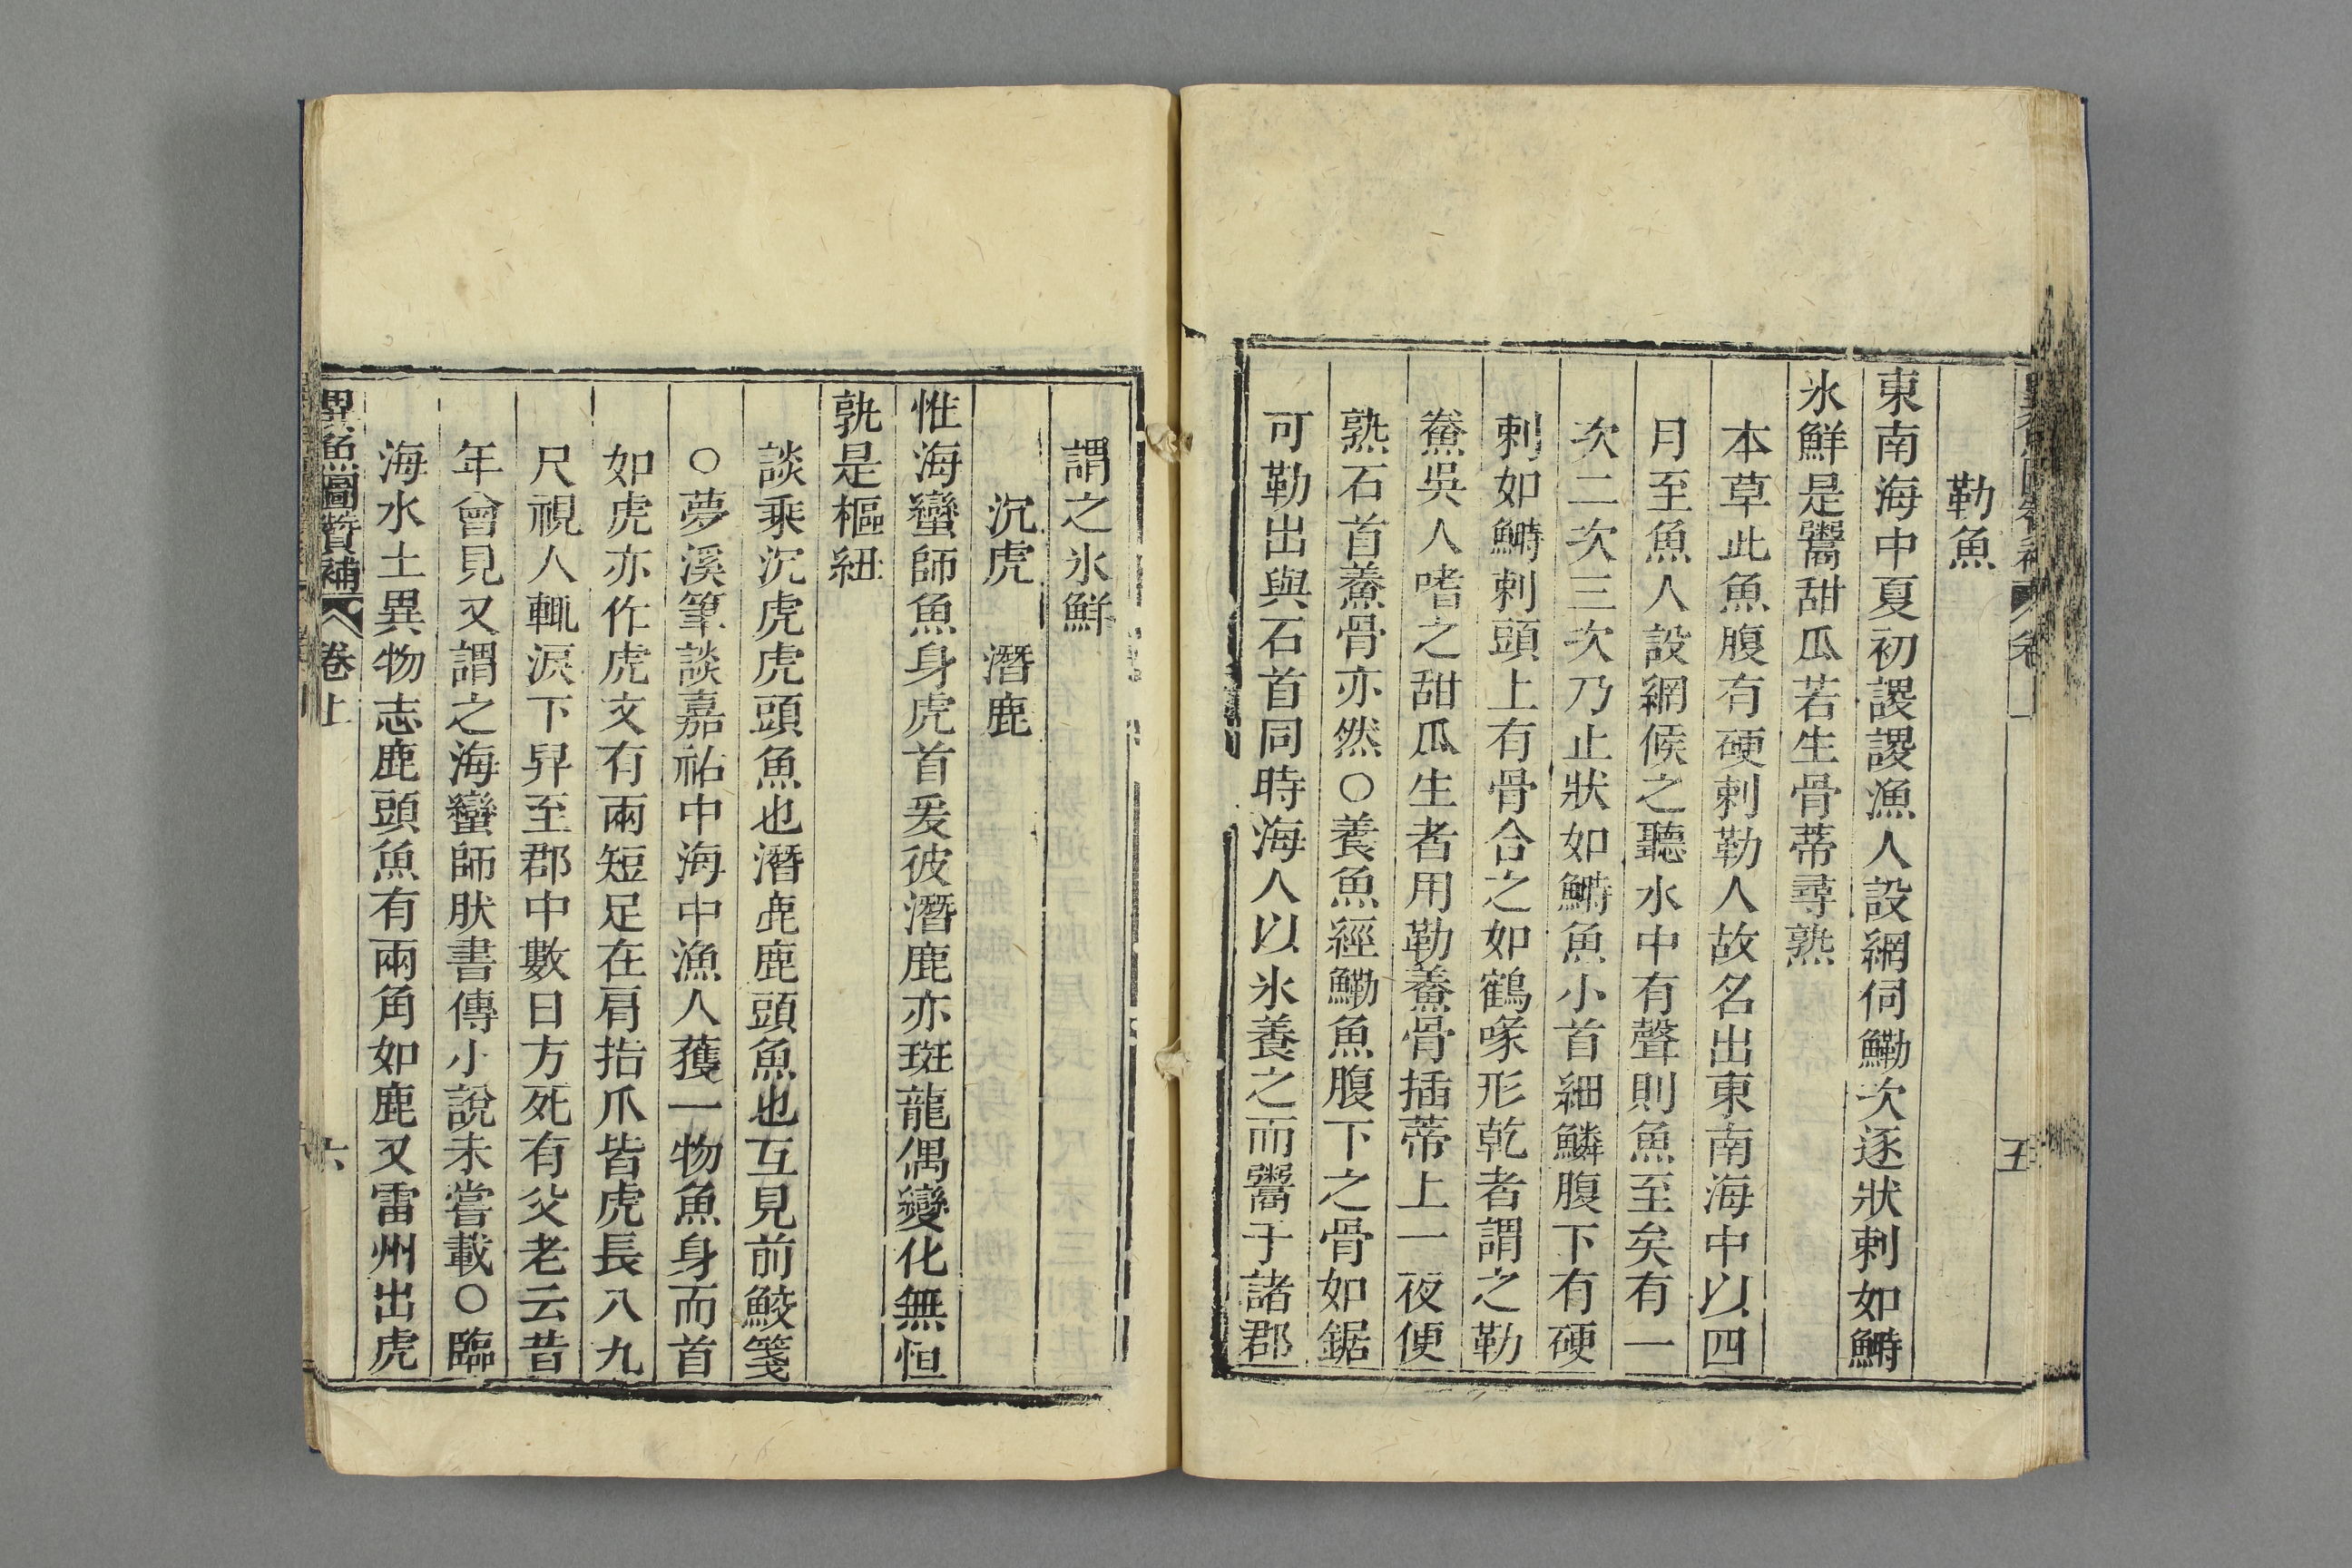 勒魚
東南海中夏初謖謖漁人設網伺鰳次逐狀刺如鰣
氷鮮是鬻甜瓜若生骨蒂尋熟
本草此魚腹有硬刺勒人故名出東南海中以四
月至魚人設網候之聽水中有聲則魚至矣有一
次二次三次乃止狀如鰣魚小首細鱗腹下有硬
刺如鰣刺頭上有骨合之如鶴喙形乾者謂之勒
鮝吳人嗜之甜瓜生者用勒鯗骨插蒂上一夜便
熟石首鯗骨亦然○養魚經鰳魚腹下之骨如鋸
可勒出與石首同時海人以氷養之而鬻于諸郡
五
謂之氷鮮
沉虎　潛鹿
惟海蠻師魚身虎首爰彼潛鹿亦斑龍偶變化無恒
孰是樞紐
談乘沉虎虎頭魚也潛鹿鹿頭魚也互見前鮫箋
○夢溪筆談嘉祐中海中漁人獲一物魚身而首
如虎亦作虎文有兩短足在肩指爪皆虎長八九
尺視人輒淚下舁至郡中數日方死有父老云昔
年曾見又謂之海蠻師肰書傳小說未嘗載○臨
海水土異物志鹿頭魚有兩角如鹿又雷州出虎
異魚圖贊補　卷上　六